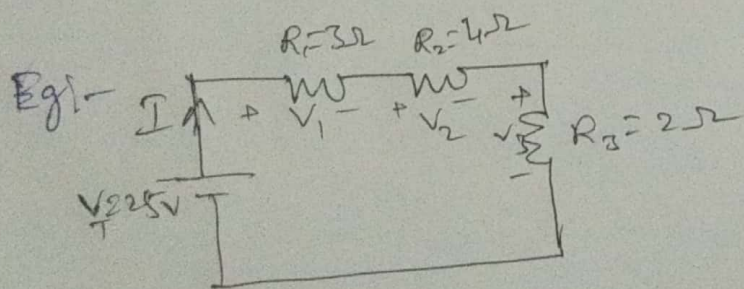 R₁=3Ω R₂=4Ω
Eg:- I + V₁ - + V₂ - +
V₃ R₃=2Ω
-
V_T=25V